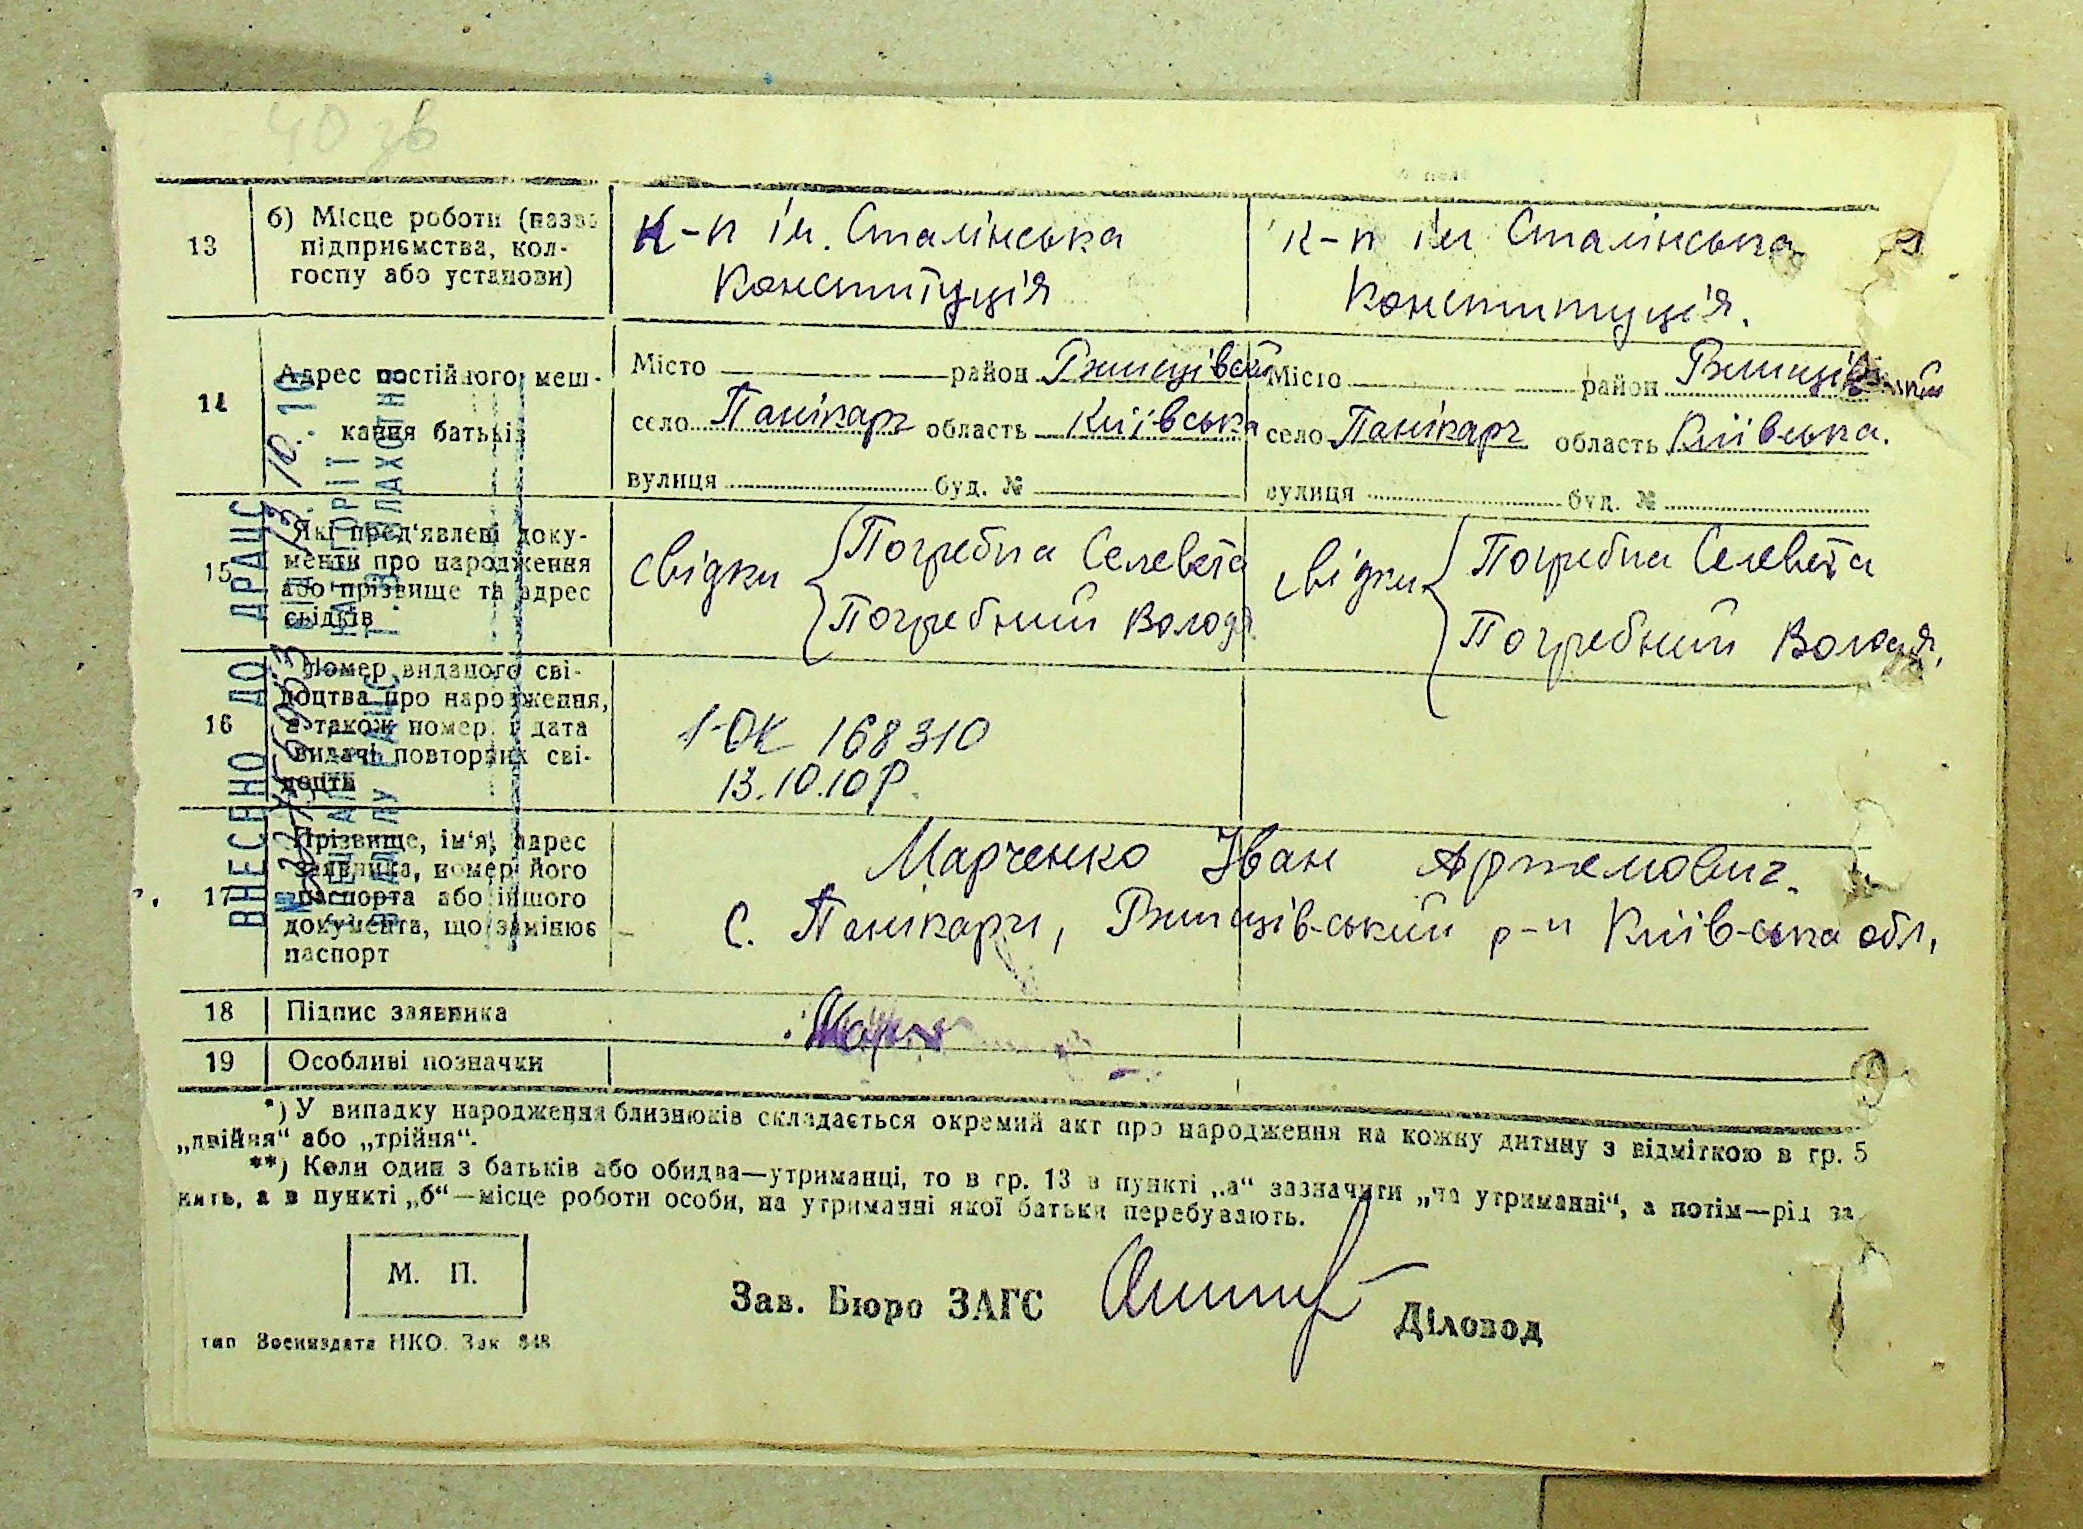 40 зв
13
б) Місце роботи (назва
підприємства, кол-
госпу або установи)
к-п ім. Сталінська
Конституція
к-п ім Сталінська
Конституція.
14
Адрес постійного меш-
кання батьків
Місто район Ржищівськ
село Панікарч область Київська
вулиця буд. №
Місто район Ржищівський
село Панікарч область Київська.
вулиця буд. №
15
Які пред'явлені доку-
менти про народження
або прізвище та адрес
свідків
свідки Погребна Селевета
Погребний Володя
свідки Погребна Селевета
Погребний Володя,
16
Номер виданого сві-
доцтва про народження,
а також номер і дата
видачі повторних сві-
доцтв
1-ОК 168310
13.10.10р.
17
Прізвище, ім'я, адрес
заявника, номер його
паспорта або іншого
документа, що замінює
паспорт
Марченко Іван Артемович.
с. Панікарчі, Ржищівський р-н Київська обл,
18 Підпис заявника
19 Особливі позначки
*) У випадку народження близнюків складається окремий акт про народження на кожну дитину з відміткою в гр. 5
„двійня“ або „трійня“.
**) Коли один з батьків або обидва—утриманці, то в гр. 13 в пункті „а“ зазначити „на утриманні“, а потім—рід за
нять, а в пункті „б“—місце роботи особи, на утриманні якої батьки перебувають.
М. П.
Зав. Бюро ЗАГС
Діловод
тип Воениздата НКО. Зак 848
ВНЕСЕНО ДО ДРАЦС